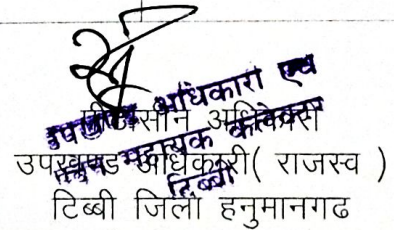 पीठासीन अधिकारी
उपखण्ड अधिकारी( राजस्व )
टिब्बी जिला हनुमानगढ
उपखण्ड अधिकारी एवं
सहायक कलेक्टर
टिब्बी